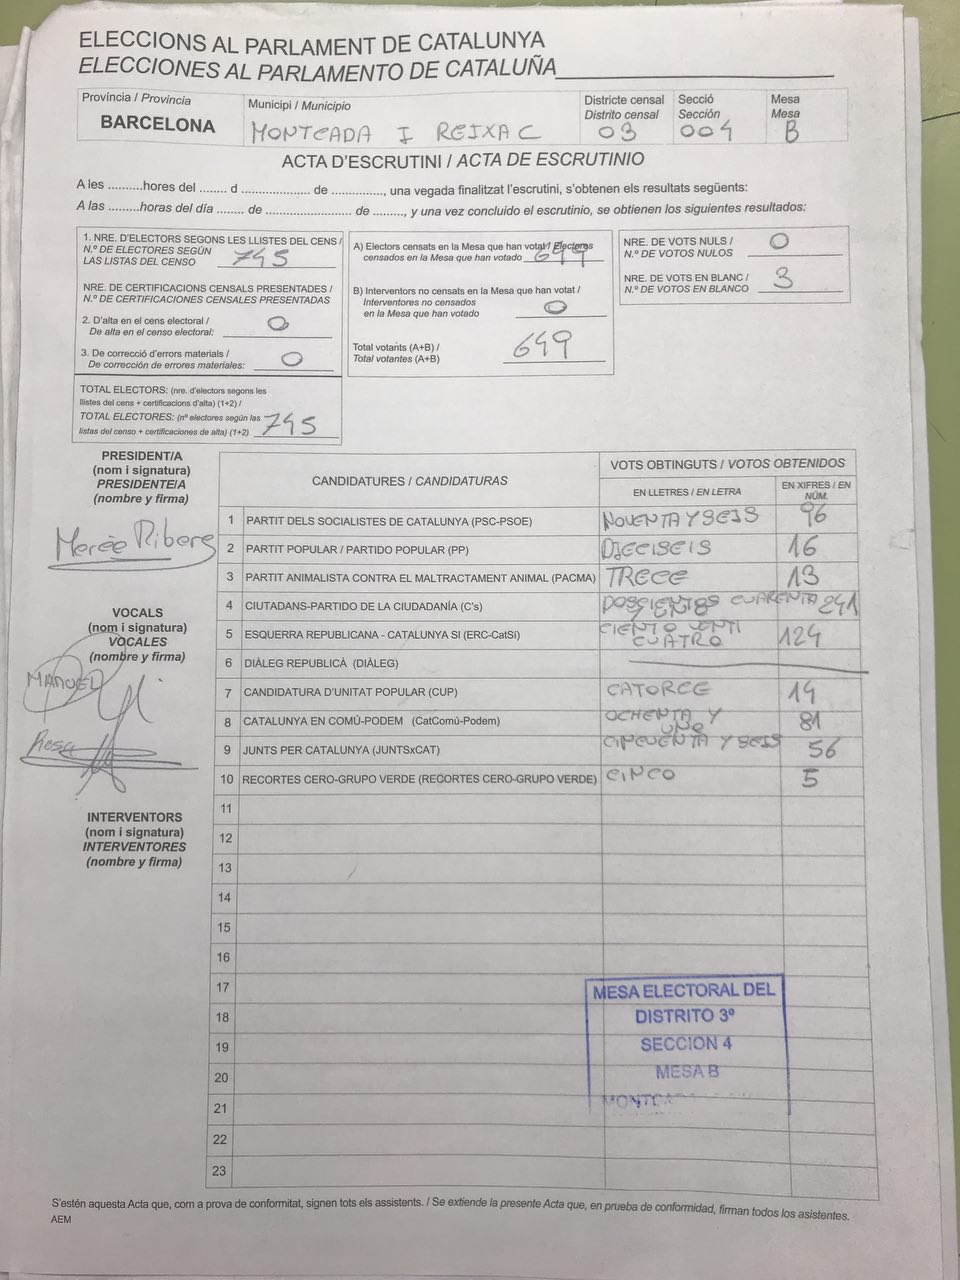 ELECCIONS AL PARLAMENT DE CATALUNYA
ELECCIONES AL PARLAMENTO DE CATALUÑA
Província / Provincia
BARCELONA
Municipi / Municipio
MONTCADA I REIXAC
Districte censal
Distrito censal
03
Secció
Sección
004
Mesa
Mesa
B
ACTA D'ESCRUTINI / ACTA DE ESCRUTINIO
A les ..........hores del ........ d .................... de ..............., una vegada finalitzat l'escrutini, s'obtenen els resultats següents:
A las ..........horas del día ........ de ......................... de ........., y una vez concluido el escrutinio, se obtienen los siguientes resultados:
1. NRE. D'ELECTORS SEGONS LES LLISTES DEL CENS /
N.º DE ELECTORES SEGÚN
LAS LISTAS DEL CENSO 745
NRE. DE CERTIFICACIONS CENSALS PRESENTADES /
N.º DE CERTIFICACIONES CENSALES PRESENTADAS
2. D'alta en el cens electoral /
De alta en el censo electoral: 0
3. De correcció d'errors materials /
De corrección de errores materiales: 0
TOTAL ELECTORS: (nre. d'electors segons les
llistes del cens + certificacions d'alta) (1+2) /
TOTAL ELECTORES: (nº electores según las
listas del censo + certificaciones de alta) (1+2) 745
A) Electors censats en la Mesa que han votat / Electores
censados en la Mesa que han votado 649
B) Interventors no censats en la Mesa que han votat /
Interventores no censados
en la Mesa que han votado 0
Total votants (A+B) /
Total votantes (A+B) 649
NRE. DE VOTS NULS /
N.º DE VOTOS NULOS 0
NRE. DE VOTS EN BLANC /
N.º DE VOTOS EN BLANCO 3
PRESIDENT/A
(nom i signatura)
PRESIDENTE/A
(nombre y firma)
Mercè Ribera
VOCALS
(nom i signatura)
VOCALES
(nombre y firma)
MANUEL
Rosa
INTERVENTORS
(nom i signatura)
INTERVENTORES
(nombre y firma)
CANDIDATURES / CANDIDATURAS
VOTS OBTINGUTS / VOTOS OBTENIDOS
EN LLETRES / EN LETRA
EN XIFRES / EN NÚM.
1 PARTIT DELS SOCIALISTES DE CATALUNYA (PSC-PSOE) NOVENTA Y SEIS 96
2 PARTIT POPULAR / PARTIDO POPULAR (PP) DIECISEIS 16
3 PARTIT ANIMALISTA CONTRA EL MALTRACTAMENT ANIMAL (PACMA) TRECE 13
4 CIUTADANS-PARTIDO DE LA CIUDADANÍA (C's) DOSCIENTOS CUARENTA 241
5 ESQUERRA REPUBLICANA - CATALUNYA SI (ERC-CatSí) CIENTO VENTI CUATRO 124
6 DIÀLEG REPUBLICÀ (DIÀLEG)
7 CANDIDATURA D'UNITAT POPULAR (CUP) CATORCE 14
8 CATALUNYA EN COMÚ-PODEM (CatComú-Podem) OCHENTA Y UNO 81
9 JUNTS PER CATALUNYA (JUNTSxCAT) CINCUENTA Y SEIS 56
10 RECORTES CERO-GRUPO VERDE (RECORTES CERO-GRUPO VERDE) CINCO 5
11
12
13
14
15
16
17
18
19
20
21
22
23
MESA ELECTORAL DEL
DISTRITO 3º
SECCION 4
MESA B
S'estén aquesta Acta que, com a prova de conformitat, signen tots els assistents. / Se extiende la presente Acta que, en prueba de conformidad, firman todos los asistentes.
AEM